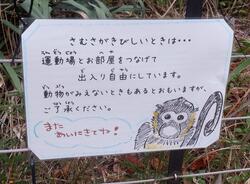 さむさがきびしいときは・・・
運動場とお部屋をつなげて
出入り自由にしています。
動物がみえないときもあるとおもいますが、
ご了承ください。
また
あいにきてね!